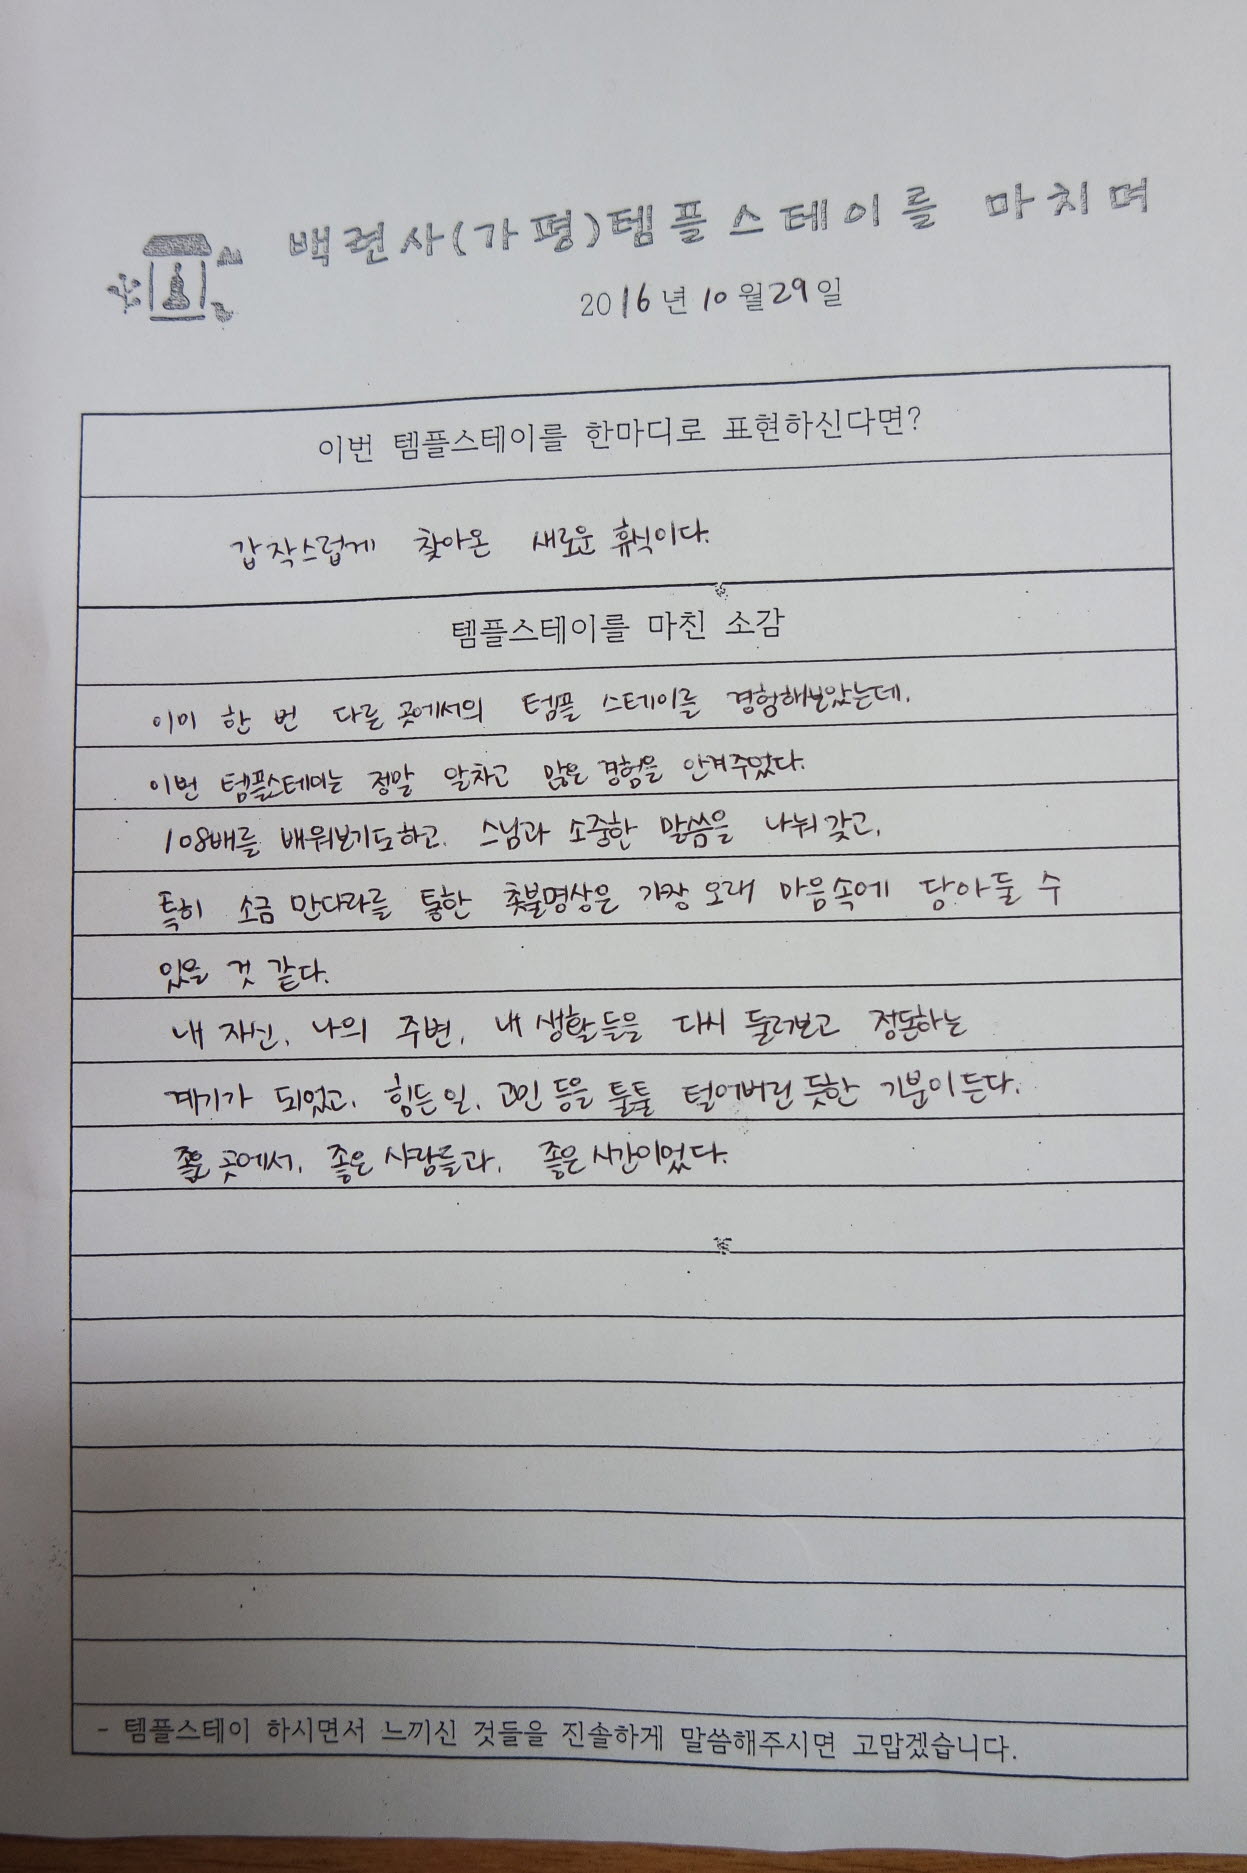 백련사(가평)템플스테이를 마치며
2016년 10월29일
이번 템플스테이를 한마디로 표현하신다면?
갑작스럽게 찾아온 새로운 휴식이다.
템플스테이를 마친 소감
이미 한 번 다른 곳에서의 템플 스테이를 경험해보았는데,
이번 템플스테이는 정말 알차고 많은 경험을 안겨주었다.
108배를 배워보기도하고, 스님과 소중한 말씀을 나눠 갖고,
특히 소금 만다라를 통한 촛불명상은 가장 오래 마음속에 담아둘 수
있을 것 같다.
내 자신, 나의 주변, 내 생활들을 다시 둘러보고 정돈하는
계기가 되었고, 힘든 일, 고민 등을 툴툴 털어버린 듯한 기분이 든다.
좋은 곳에서, 좋은 사람들과, 좋은 시간이었다.
- 템플스테이 하시면서 느끼신 것들을 진솔하게 말씀해주시면 고맙겠습니다.